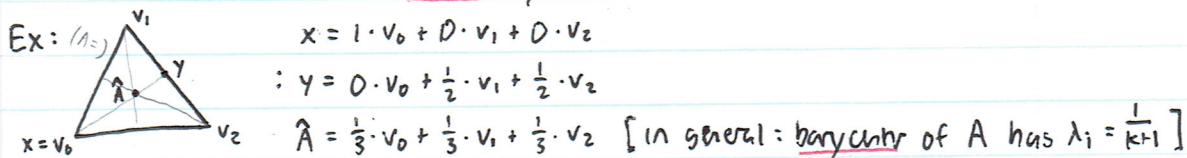 Ex: (A=)
v₁
y
Â
x=v₀
v₂
x = 1·v₀ + 0·v₁ + 0·v₂
: y = 0·v₀ + 1/2·v₁ + 1/2·v₂
Â = 1/3·v₀ + 1/3·v₁ + 1/3·v₂ [in general: barycentr of A has λᵢ = 1/k+1]